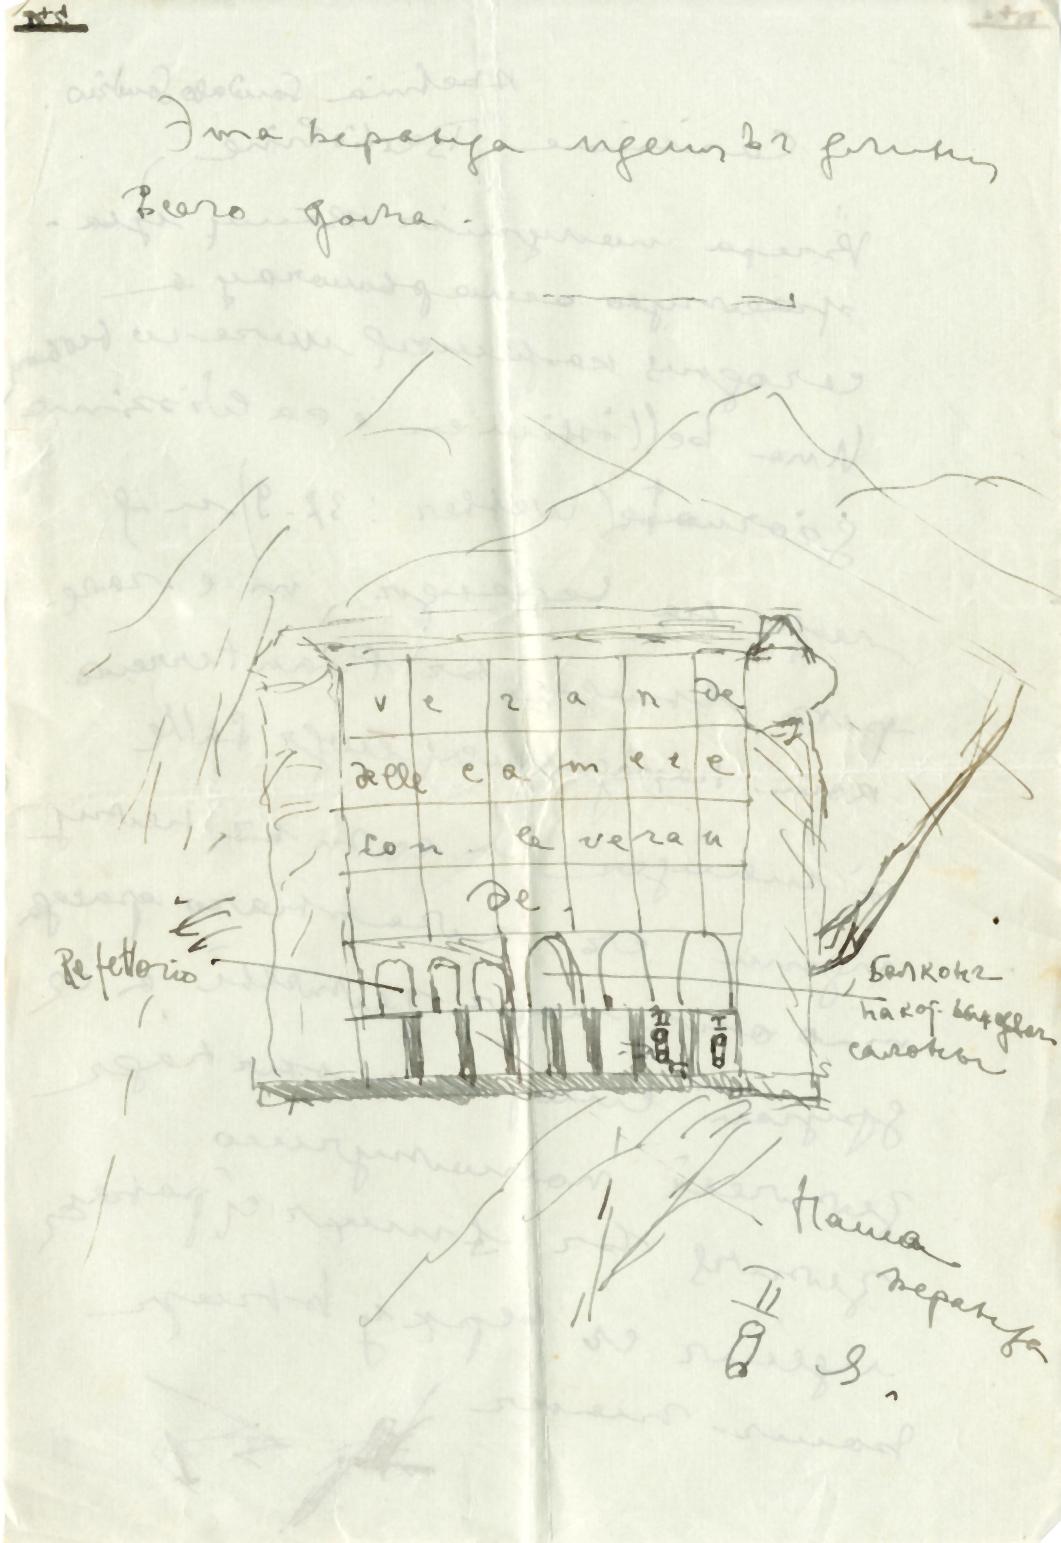 Эта веранда идетъ въ длину
всего дома.
verande
delle camere
con le veran
de.
Refettorio
Балконъ
на кот. выходят
салоны
II
I
Наша
веранда
II
Я.